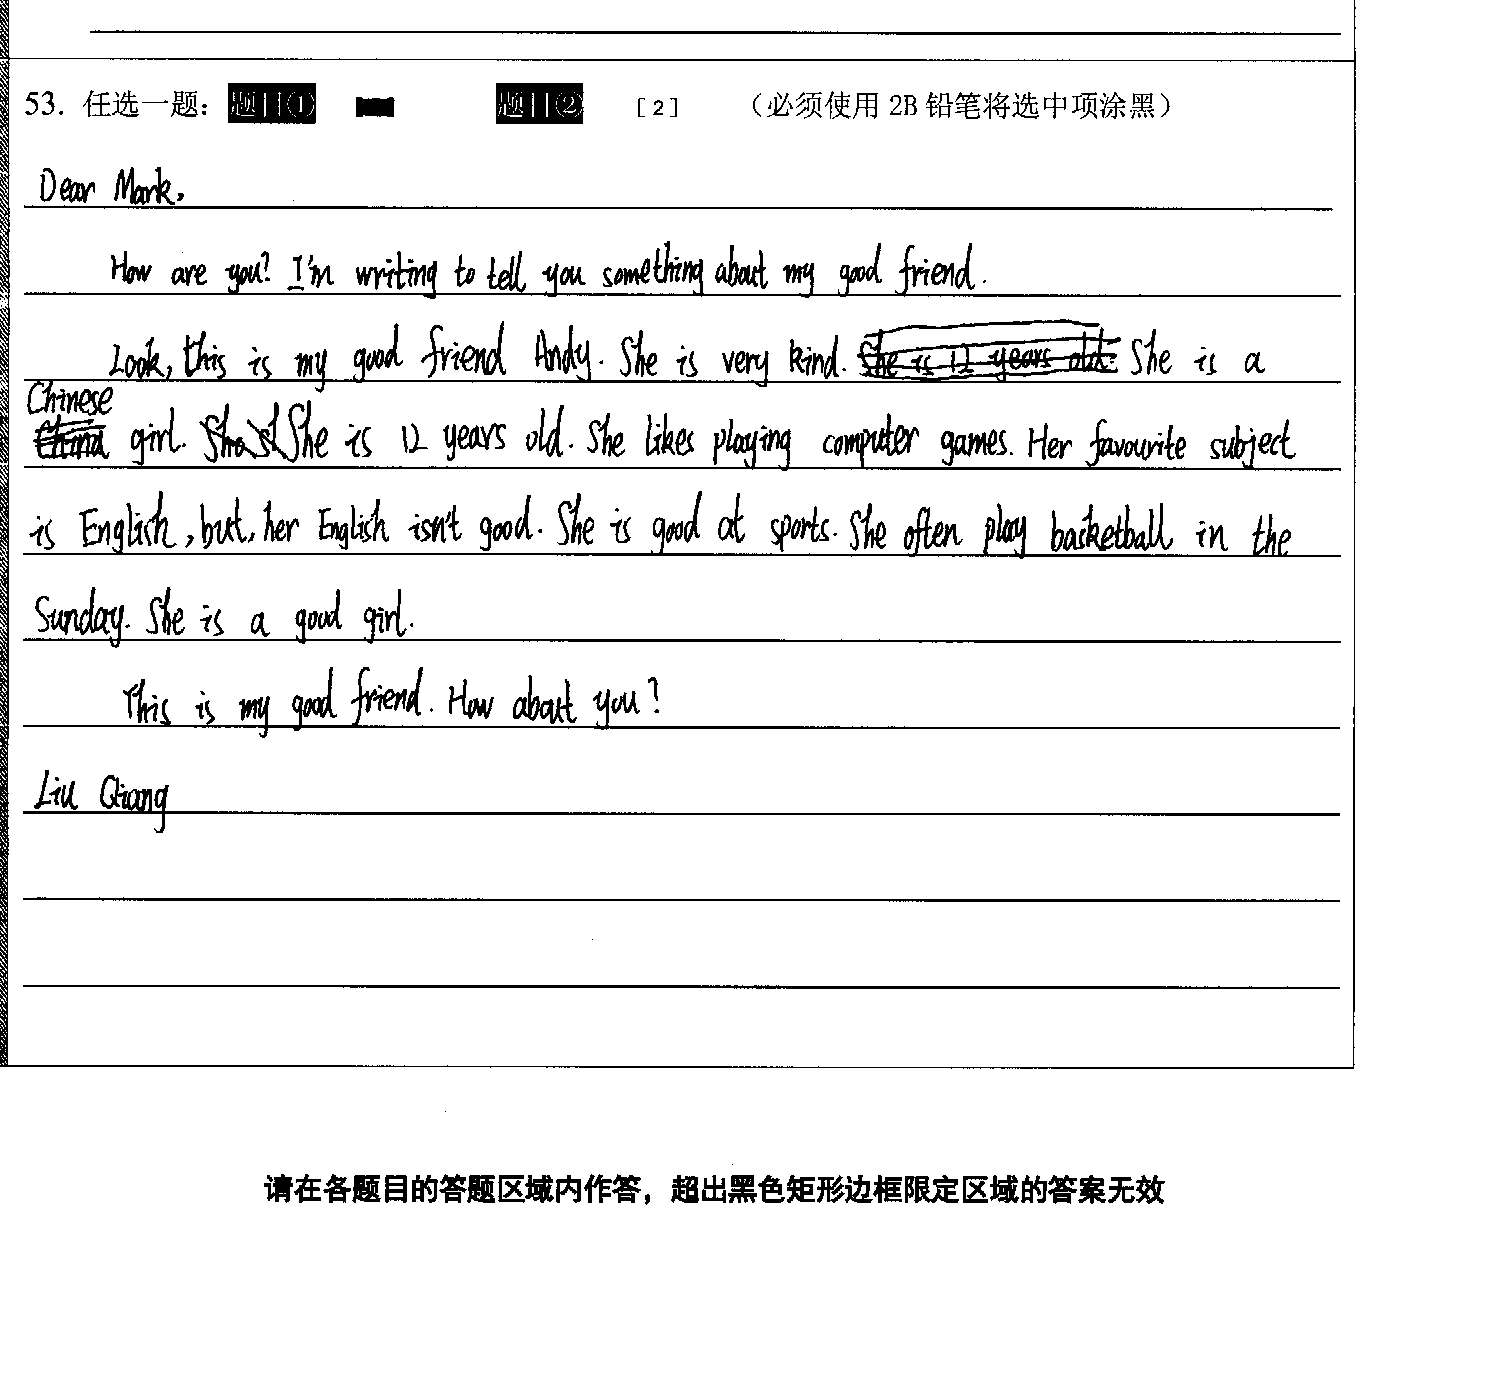 53. 任选一题： 题目① 题目② [2] （必须使用 2B 铅笔将选中项涂黑）
Dear Mark,
How are you? I'm writing to tell you something about my good friend.
Look, this is my good friend Andy. She is very kind. She is 12 years old. She is a
Chinese
China girl. She is 12 years old. She likes playing computer games. Her favourite subject
is English, but, her English isn't good. She is good at sports. She often play basketball in the
Sunday. She is a good girl.
This is my good friend. How about you?
Liu Qiang
请在各题目的答题区域内作答，超出黑色矩形边框限定区域的答案无效